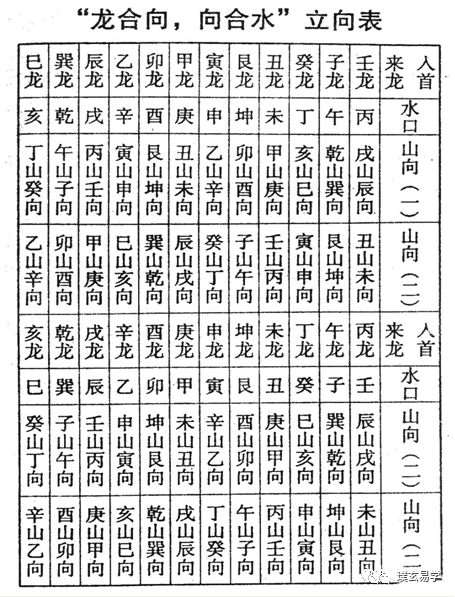 “龙合向，向合水”立向表
人首来龙 壬龙 子龙 癸龙 丑龙 艮龙 寅龙 甲龙 卯龙 乙龙 辰龙 巽龙 巳龙
水口 丙 午 丁 未 坤 申 庚 酉 辛 戌 乾 亥
山向（一） 戌山辰向 乾山巽向 亥山巳向 甲山庚向 卯山酉向 乙山辛向 丑山未向 艮山坤向 寅山申向 丙山壬向 午山子向 丁山癸向
山向（二） 丑山未向 艮山坤向 寅山申向 壬山丙向 子山午向 癸山丁向 辰山戌向 巽山乾向 巳山亥向 甲山庚向 卯山酉向 乙山辛向
人首来龙 丙龙 午龙 丁龙 未龙 坤龙 申龙 庚龙 酉龙 辛龙 戌龙 乾龙 亥龙
水口 壬 子 癸 丑 艮 寅 甲 卯 乙 辰 巽 巳
山向（二） 辰山戌向 巽山乾向 巳山亥向 庚山甲向 酉山卯向 辛山乙向 未山丑向 坤山艮向 申山寅向 壬山丙向 子山午向 癸山丁向
山向（二 未山丑向 坤山艮向 申山寅向 丙山壬向 午山子向 丁山癸向 戌山辰向 乾山巽向 亥山巳向 庚山甲向 酉山卯向 辛山乙向
璞玄易学